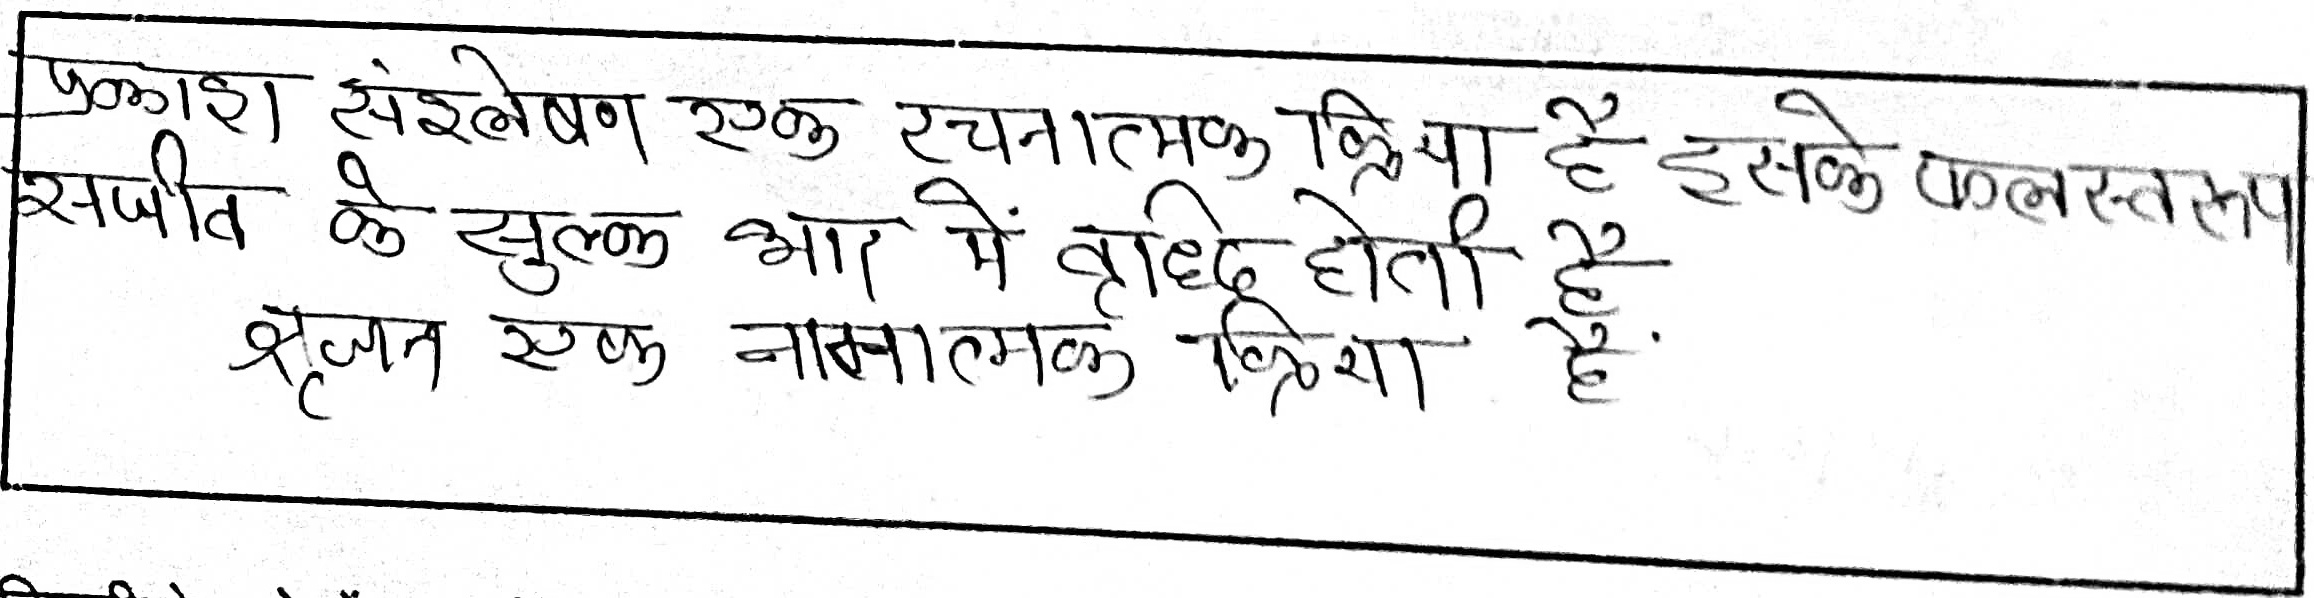 प्रकाश संश्लेषण एक रचनात्मक क्रिया है इसके फलस्वरूप
सजीव के सुल्क भार में वृद्धि होती है
श्रृजन एक नासात्मक क्रिया है.